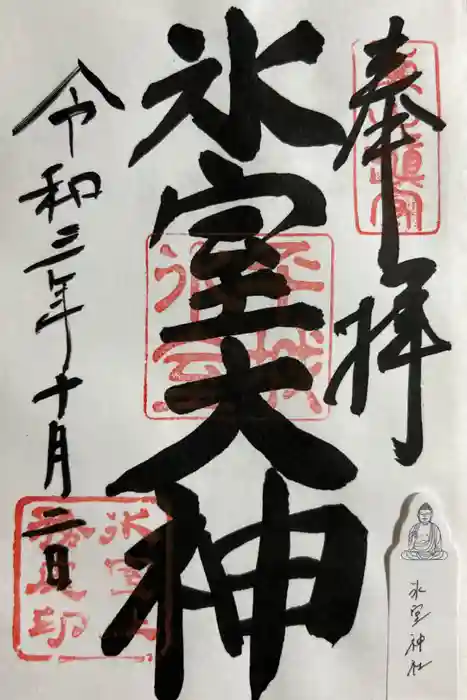 奉拝
氷室大神
令和三年十月二日
平城
氷室
氷室神社